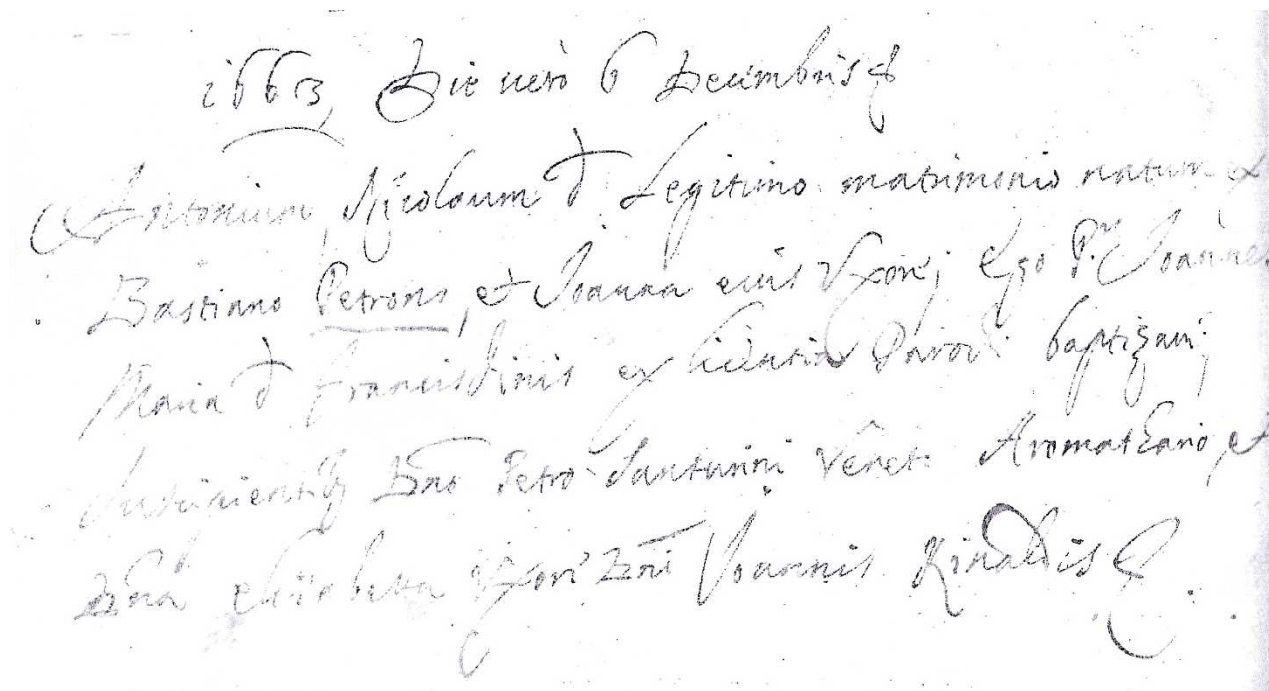 1663, Die uero 6 Decembris &
Antonium Nicolaum d Legitimo matrimonio natum ex
Bastiano Petronis, et Joanna eius Uxore; Ego P.r Joannes
Maria d Francischinis ex licentia Parochi baptizaui;
Suscipientib. Dno Petro Santurini Venet. Aromathario, et
Dna Elisabetta Uxori Dni Joannis Rinaldis &